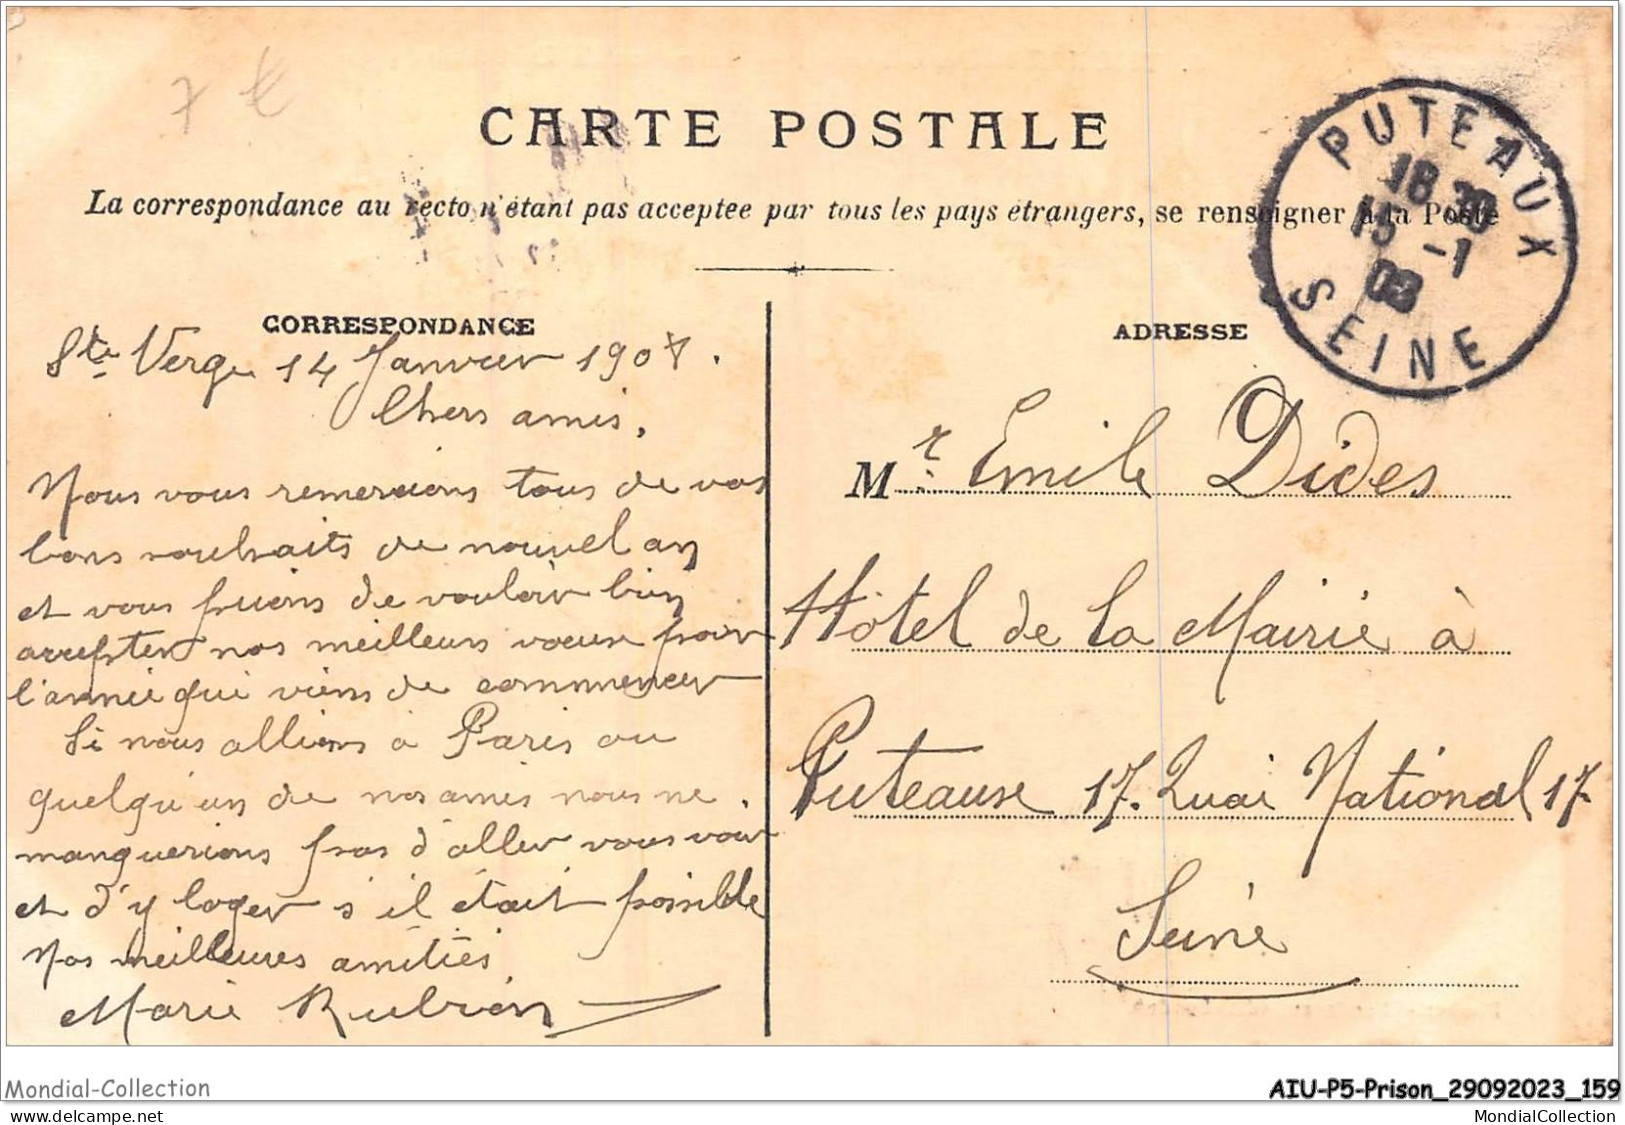 7 €
CARTE POSTALE
La correspondance au recto n'étant pas acceptée par tous les pays étrangers, se renseigner à la Poste
PUTEAUX
18 30
15 -1
08
SEINE
CORRESPONDANCE
Ste Verge 14 Janvier 1908.
Chers amis,
Nous vous remercions tous de vos
bons souhaits de nouvel an
et vous prions de vouloir bien
accepter nos meilleurs voeux pour
l'année qui viens de commencer
Si nous allions à Paris ou
quelqu'un de nos amis nous ne
manquerions pas d'aller vous voir
et d'y loger s'il était possible
Nos meilleures amitiés
Marie
ADRESSE
Mr. Emile Dides
Hôtel de la Mairie à
Puteaux 17. Quai National 17
Seine
Mondial-Collection
AIU-P5-Prison_29092023_159
MondialCollection